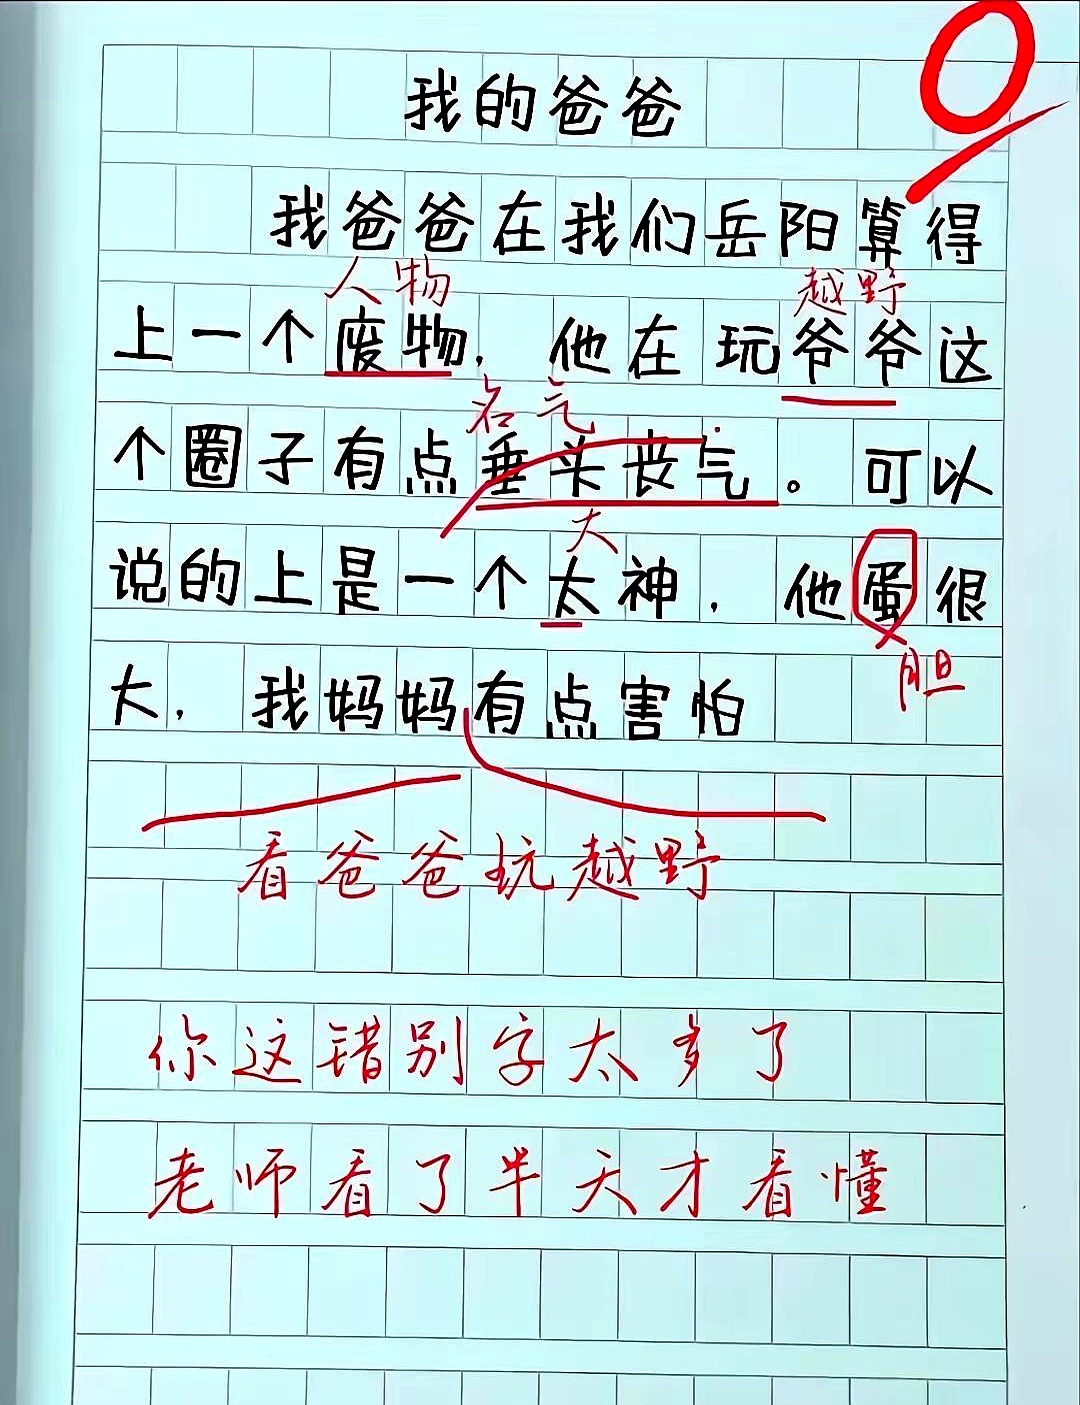 0
我的爸爸
我爸爸在我们岳阳算得
人物 越野
上一个废物，他在玩爷爷这
名气
个圈子有点垂头丧气。可以
大
说的上是一个太神，他蛋很
胆
大，我妈妈有点害怕
看爸爸玩越野
你这错别字太多了
老师看了半天才看懂